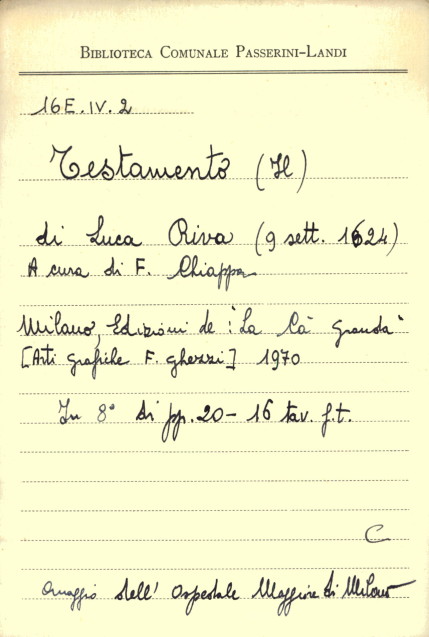 BIBLIOTECA COMUNALE PASSERINI-LANDI
16E.IV.2
Testamento (Il)
di Luca Riva (9 sett. 1624)
A cura di F. Chiappa
Milano, Edizioni de "La Cà granda"
[Arti grafiche F. Ghezzi] 1970
In 8° di pp. 20 - 16 tav. f.t.
C
Omaggio dell' Ospedale Maggiore di Milano